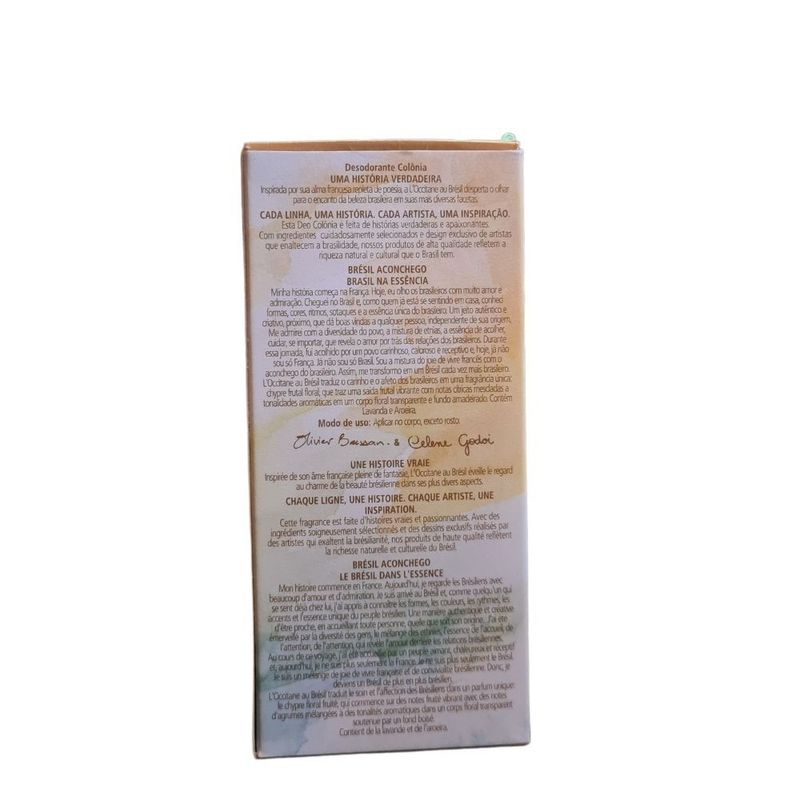 Desodorante Colônia
UMA HISTÓRIA VERDADEIRA
Inspirada por sua alma francesa repleta de poesia, a L'Occitane au Brésil desperta o olhar
para o encanto da beleza brasileira em suas mais diversas facetas.
CADA LINHA, UMA HISTÓRIA. CADA ARTISTA, UMA INSPIRAÇÃO.
Esta Deo Colônia e feita de histórias verdadeiras e apaixonantes.
Com ingredientes cuidadosamente selecionados e design exclusivo de artistas
que enaltecem a brasilidade, nossos produtos de alta qualidade refletem a
riqueza natural e cultural que o Brasil tem.
BRÉSIL ACONCHEGO
BRASIL NA ESSÊNCIA
Minha história começa na França. Hoje, eu olho os brasileiros com muito amor e
admiração. Cheguei no Brasil e, como quem já está se sentindo em casa, conheci
formas, cores, ritmos, sotaques e a essência única do brasileiro. Um jeito autêntico e
criativo, próximo, que dá boas vindas a qualquer pessoa, independente de sua origem.
Me admirei com a diversidade do povo, a mistura de etnias, a essência de acolher,
cuidar, se importar, que revela o amor por trás das relações dos brasileiros. Durante
essa jornada, fui acolhido por um povo carinhoso, caloroso e receptivo e, hoje, já não
sou só França. Já não sou só Brasil. Sou a mistura do joie de vivre francês com o
aconchego do brasileiro. Assim, me transformo em um Brésil cada vez mais brasileiro.
L'Occitane au Brésil traduz o carinho e o afeto dos brasileiros em uma fragrância única:
chypre frutal floral, que traz uma saída frutal vibrante com notas cítricas mescladas a
tonalidades aromáticas em um corpo floral transparente e fundo amadeirado. Contém
Lavanda e Aroeira.
Modo de uso: Aplicar no corpo, exceto rosto.
Olivier Baussan. & Celene Godoi
UNE HISTOIRE VRAIE
Inspirée de son âme française pleine de fantaisie, L'Occitane au Brésil éveille le regard
au charme de la beauté brésilienne dans ses plus divers aspects.
CHAQUE LIGNE, UNE HISTOIRE. CHAQUE ARTISTE, UNE
INSPIRATION.
Cette fragrance est faite d'histoires vraies et passionnantes. Avec des
ingrédients soigneusement sélectionnés et des dessins exclusifs réalisés par
des artistes qui exaltent la brésilianité, nos produits de haute qualité reflètent
la richesse naturelle et culturelle du Brésil.
BRÉSIL ACONCHEGO
LE BRÉSIL DANS L'ESSENCE
Mon histoire commence en France. Aujourd'hui, je regarde les Brésiliens avec
beaucoup d'amour et d'admiration. Je suis arrivé au Brésil et, comme quelqu'un qui
se sent déjà chez lui, j'ai appris a connaître les formes, les couleurs, les rythmes, les
accents et l'essence unique du peuple brésilien. Une manière authentique et créative
d'être proche, en accueillant toute personne, quelle que soit son origine. J'ai été
émerveillé par la diversité des gens, le mélange des ethnies, l'essence de l'accueil, de
l'attention, de l'attention, qui révèle l'amour derrière les relations brésiliennes.
Au cours de ce voyage, j'ai été accueilli par un peuple aimant, chaleureux et réceptif
et, aujourd'hui, je ne suis plus seulement la France. Je ne suis plus seulement le Brésil.
Je suis un mélange de joie de vivre française et de convivialité brésilienne. Donc, je
deviens un Brésil de plus en plus brésilien.
L'Occitane au Brésil traduit le soin et l'affection des Brésiliens dans un parfum unique:
le chypre floral fruité, qui commence sur des notes fruité vibrant avec des notes
d'agrumes mélangées à des tonalités aromatiques dans un corps floral transparent
soutenue par un fond boisé.
Contient de la lavande et de l'aroeira.